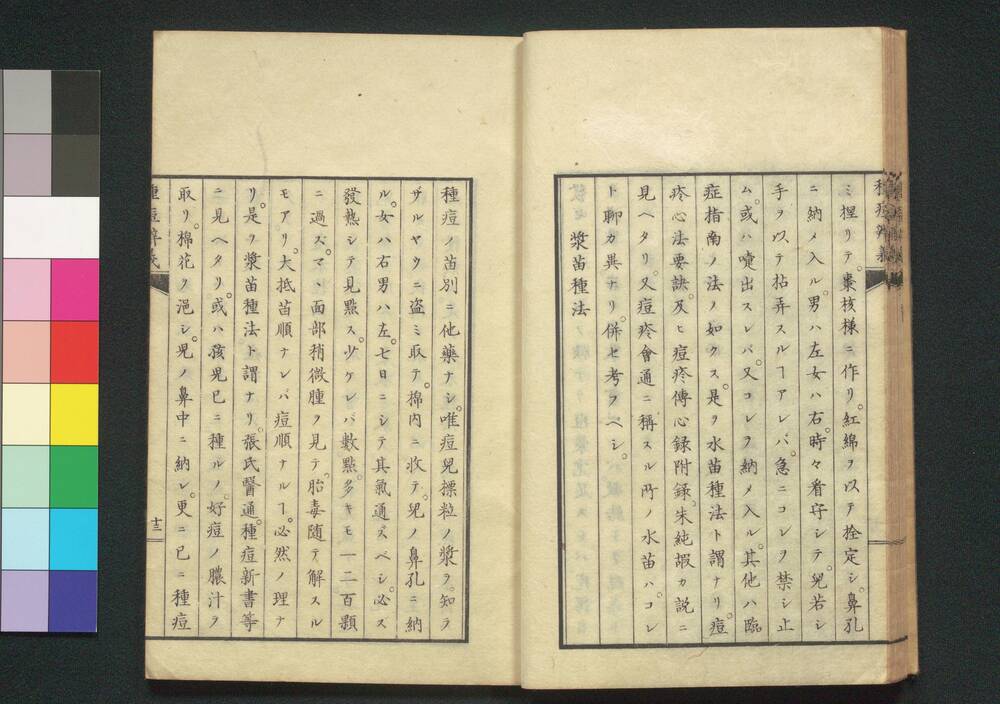 ミ捏リテ。棗核様ニ作リ。紅綿ヲ以テ栓定シ。鼻孔
ニ納メ入ル。男ハ左女ハ右。時々看守シテ。兒若シ
手ヲ以テ拈弄スルヿアレバ。急ニコレヲ禁シ止
ム。或ハ嚏出スレバ。又コレヲ納メ入ル。其他ハ臨
症指南ノ法ノ如クス。是ヲ水苗種法ト謂ナリ。痘
疹心法要訣。及ヒ痘疹傳心録附録。朱純嘏カ説ニ
見ヘタリ。又痘疹會通ニ稱スル所ノ水苗ハ。コレ
ト聊カ異ナリ。併セ考フベシ。
漿苗種法
種痘ノ苗別ニ他藥ナシ。唯痘兒摽粒ノ漿ヲ。知ラ
ザルヤウニ盗ミ取テ。棉内ニ收テ。兒ノ鼻孔ニ納
ル。女ハ右男ハ左。七日ニシテ其氣通ズベシ。必ス
發熱シテ見點ス。少ケレバ數點。多キモ一二百顆
ニ過ズ。マヽ面部稍微腫ヲ見テ。胎毒随テ解スル
モアリ。大抵苗順ナレバ痘順ナルヿ。必然ノ理ナ
リ。是ヲ漿苗種法ト謂ナリ。張氏醫通。種痘新書等
ニ見ヘタリ。或ハ孩兒已ニ種ルノ。好痘ノ膿汁ヲ
取リ。棉花ヲ浥シ。兒ノ鼻中ニ納レ。更ニ已ニ種痘
十三